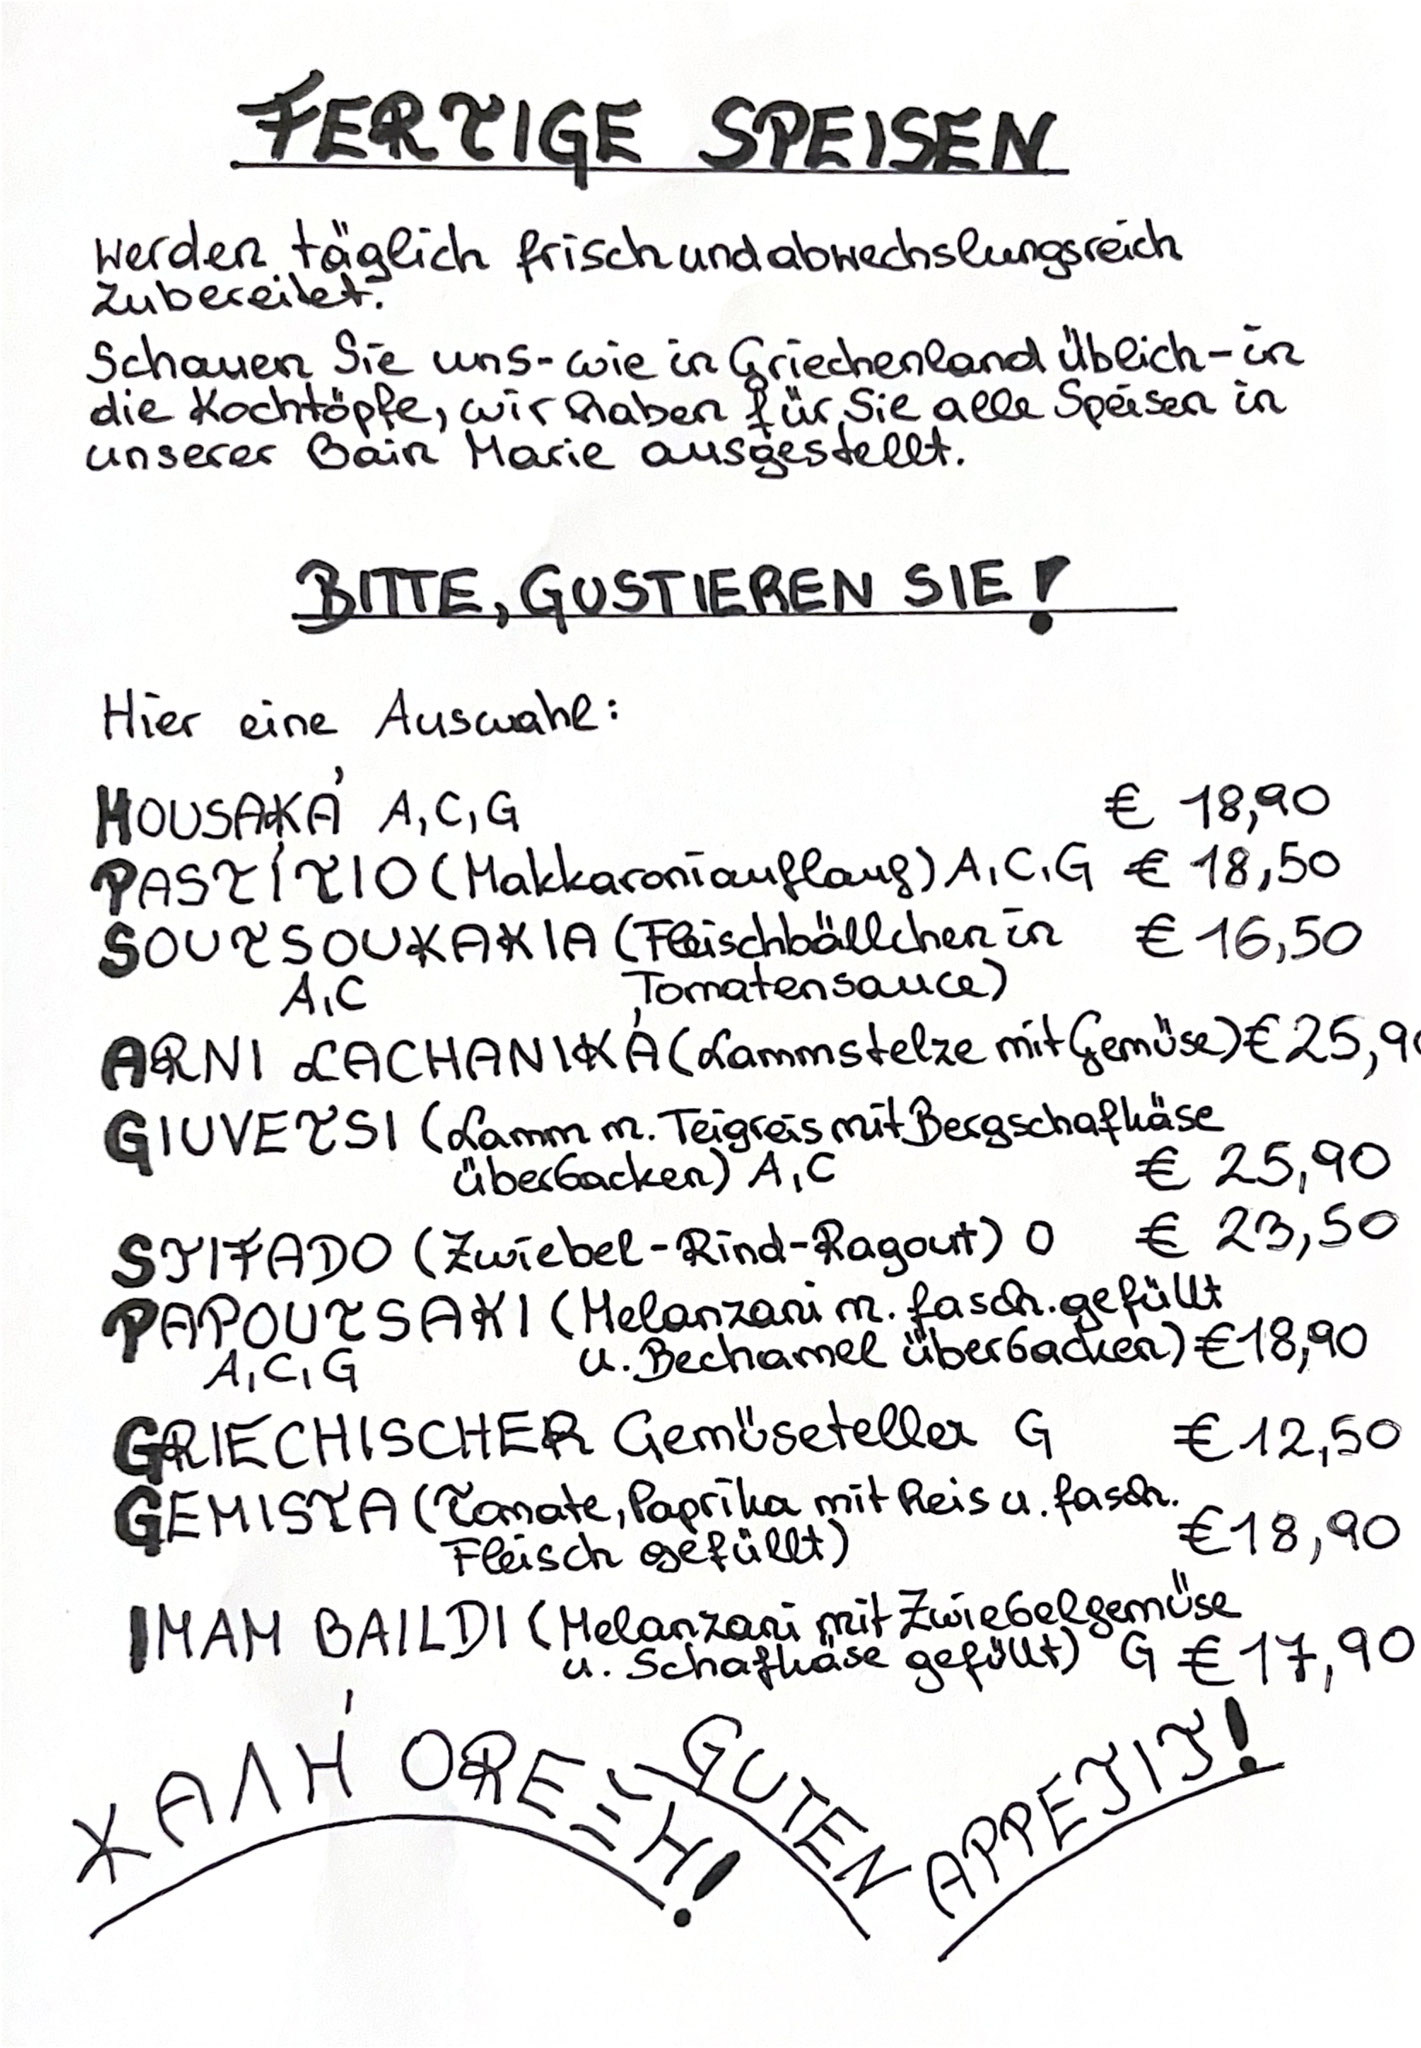 FERTIGE SPEISEN
werden täglich frisch und abwechslungsreich
zubereitet.
Schauen Sie uns - wie in Griechenland Üblich - in
die Kochtöpfe, wir haben für Sie alle Speisen in
unserer Bain Marie ausgestellt.
BITTE, GUSTIEREN SIE!
Hier eine Auswahl:
MOUSAKÁ A,C,G € 18,90
PASTÍTIO (Makkaroniauflauf) A,C,G € 18,50
SOUTSOUKAKIA (Fleischbällchen in € 16,50
A,C Tomatensauce)
ARNI LACHANIKÁ (Lammstelze mit Gemüse) € 25,90
GIUVETSI (Lamm m. Teigreis mit Bergschafkäse
überbacken) A,C € 25,90
STIFADO (Zwiebel-Rind-Ragout) O € 23,50
PAPOUTSAKI (Melanzani m. fasch. gefüllt
A,C,G u. Bechamel überbacken) € 18,90
GRIECHISCHER Gemüseteller G € 12,50
GEMISTA (Tomate, Paprika mit Reis u. fasch.
Fleisch gefüllt) € 18,90
IMAM BAILDI (Melanzani mit Zwiebelgemüse
u. Schafkäse gefüllt) G € 17,90
ΚΑΛΉ ΟRΕΞΗ! GUTEN APPETIT!